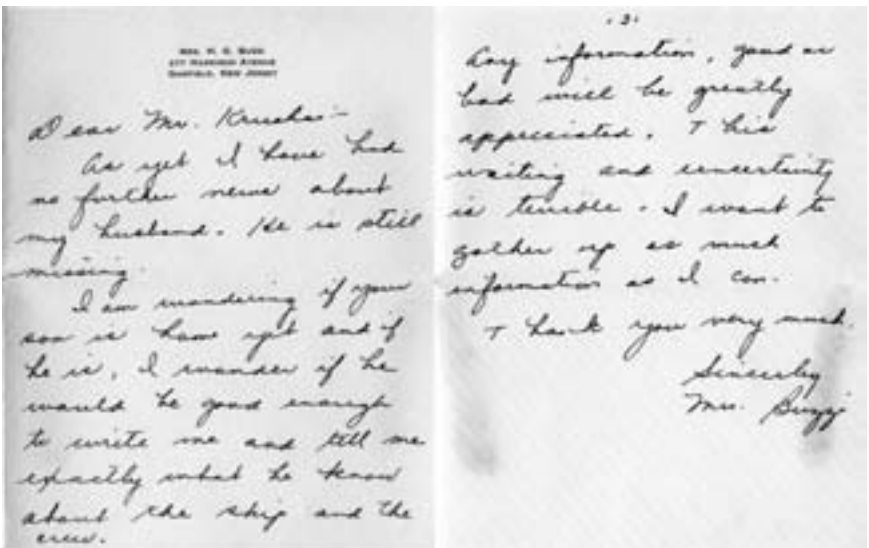 Dear Mr.
As yet I have had
no further news about
my husband. He is still
missing.
I am wondering if your
son is home yet and if
he is, I wonder if he
would be good enough
to write me and tell me
exactly what he know
about the ship and the
crew.
. 2.
Any information, good or
bad will be greatly
appreciated. This
waiting and uncertainty
is terrible. I want to
gather up as much
information as I can.
Thank you very much.
Sincerely
Mrs. Buzzi